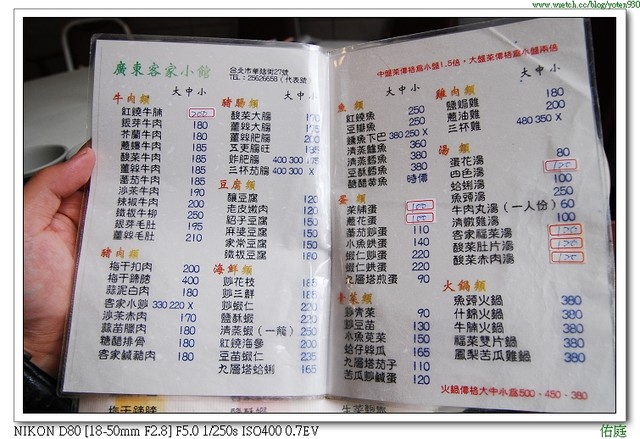 www.wretch.cc/blog/yoten930
廣東客家小館
台北市華話街27號
TEL:25626658 (代表號)
大中小
牛肉類
紅燒牛腩 200
銀芽牛肉 180
芥蘭牛肉 180
蔥爆牛肉 185
酸菜牛肉 185
薑絲牛肉 185
蕃茄牛肉 185
沙茶牛肉 190
辣椒牛肉 200
鐵板牛柳 250
銀芽毛肚 195
薑絲毛肚 210
豬肉類
梅干扣肉 200
梅干蹄膀 400
蒜泥白肉 180
客家小炒 330 220 X
沙茶赤肉 170
蒜苗臘肉 180
糖醋排骨 180
客家鹹豬肉 180
豬腸類
大中小
酸菜大腸 170
薑絲大腸 175
薑絲肥腸 200
五更腸旺 135
炸肥腸 400 300 175
三杯茄腸 400 300 X
豆腐類
釀豆腐 120
走皮嫩肉 120
紹子豆腐 150
麻婆豆腐 150
家常豆腐 150
鐵板豆腐 180
海鮮類
炒花枝 185
炒三鮮 185
炒蝦仁 220
鹽酥蝦 220
清蒸蝦(一籠) 250
紅燒海參 200
豆苗蝦仁 235
九層塔蛤蜊 165
中盤菜價格為小盤1.5倍,大盤菜價格為小盤兩倍
魚類
大中小
紅燒魚 250
豆瓣魚 250
鹹魚下巴 380 250 X
清蒸鱸魚 350
清蒸鱈魚 350
豆酥鱈魚 380
糖醋黃魚 時價
蛋類
菜脯蛋 100
蔥花蛋 100
蕃茄炒蛋 110
小魚烘蛋 140
蝦仁炒蛋 200
蝦仁烘蛋 200
九層塔煎蛋 90
青菜類
炒青菜 90
炒豆苗 130
小魚莧菜 150
蛤仔絲瓜 165
九層塔茄子 110
苦瓜炒鹹蛋 120
雞肉類
大中小
鹽焗雞 180
蔥油雞 200
三杯雞 480 350 X
湯類
蛋花湯 80
四色湯 120
蛤蜊湯 100
魚頭湯 250
牛肉丸湯(一人份) 60
清燉雞湯 100
客家福菜湯 120
酸菜肚片湯 120
酸菜赤肉湯 120
火鍋類
魚頭火鍋 380
什錦火鍋 380
牛腩火鍋 380
福菜雙片鍋 380
鳳梨苦瓜雞鍋 380
火鍋價格大中小為500、450、380
NIKON D80 [18-50mm F2.8] F5.0 1/250s ISO400 0.7EV
佑庭